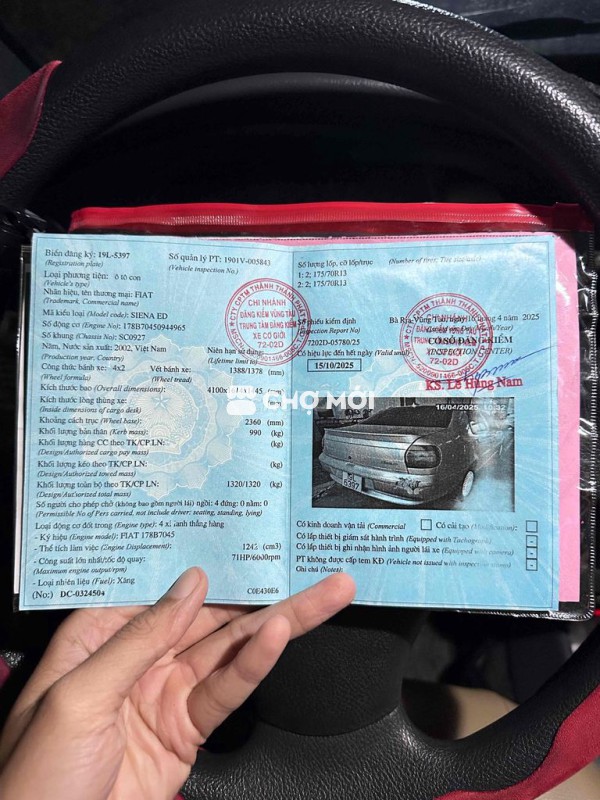 Biển đăng ký: 19L-5397
(Registration plate)
Số quản lý PT: 1901V-005843
(Vehicle inspection No.)
Loại phương tiện: ô tô con
(Vehicle's type)
Nhãn hiệu, tên thương mại: FIAT
(Trademark, Commercial name)
Mã kiểu loại (Model code): SIENA ED
Số động cơ (Engine No): 178B70450944965
Số khung (Chassis No): SC0927
Năm, Nước sản xuất: 2002, Việt Nam
(Production year, Country)
Niên hạn sử dụng:
(Lifetime limit to)
Công thức bánh xe: 4x2
(Wheel formula)
Vết bánh xe: 1388/1378 (mm)
(Wheel tread)
Kích thước bao (Overall dimensions): 4100x (mm)
Kích thước lòng thùng xe:
(Inside dimensions of cargo desk)
Khoảng cách trục (Wheel base): 2360 (mm)
Khối lượng bản thân (Kerb mass): 990 (kg)
Khối lượng hàng CC theo TK/CP LN: (kg)
(Design/Authorized cargo pay mass)
Khối lượng kéo theo TK/CP LN: (kg)
(Design/Authorized towed mass)
Khối lượng toàn bộ theo TK/CP LN: 1320/1320 (kg)
(Design/Authorized total mass)
Số người cho phép chở (không bao gồm người lái): ngồi: 4 đứng: 0 nằm: 0
(Permissible No of Pers carried, not include driver: seating, standing, lying)
Loại động cơ đốt trong (Engine type): 4 xi lanh thẳng hàng
- Ký hiệu (Engine model): FIAT 178B7045
- Thể tích làm việc (Engine Displacement): (cm3)
- Công suất lớn nhất/tốc độ quay: 71HP/6000rpm
(Maximum engine output/rpm)
- Loại nhiên liệu (Fuel): Xăng
(No:) DC-0324504
C0E430E6
CHI NHÁNH
ĐĂNG KIỂM VŨNG TÀU
TRUNG TÂM ĐĂNG KIỂM
XE CƠ GIỚI
72-02D
CHỢ MỚI
Số lượng lốp, cỡ lốp/trục (Number of tires; Tire size/axle)
1: 2; 175/70R13
2: 2; 175/70R13
Số phiếu kiểm định
(Inspection Report No)
7202D-05780/25
Bà Rịa-Vũng Tàu, ngày 16 tháng 4 năm 2025
CƠ SỞ ĐĂNG KIỂM
(INSPECTION CENTER)
Có hiệu lực đến hết ngày (Valid until)
15/10/2025
72-02D
KS. Lê Hùng Nam
16/04/2025 10:32
5397
Có kinh doanh vận tải (Commercial
Có cải tạo
Có lắp thiết bị giám sát hành trình (Equipped with Tachograph)
Có lắp thiết bị ghi nhận hình ảnh người lái xe (Equipped with camera)
PT không được cấp tem KĐ (Vehicle not issued with inspection
Ghi chú (Notes):